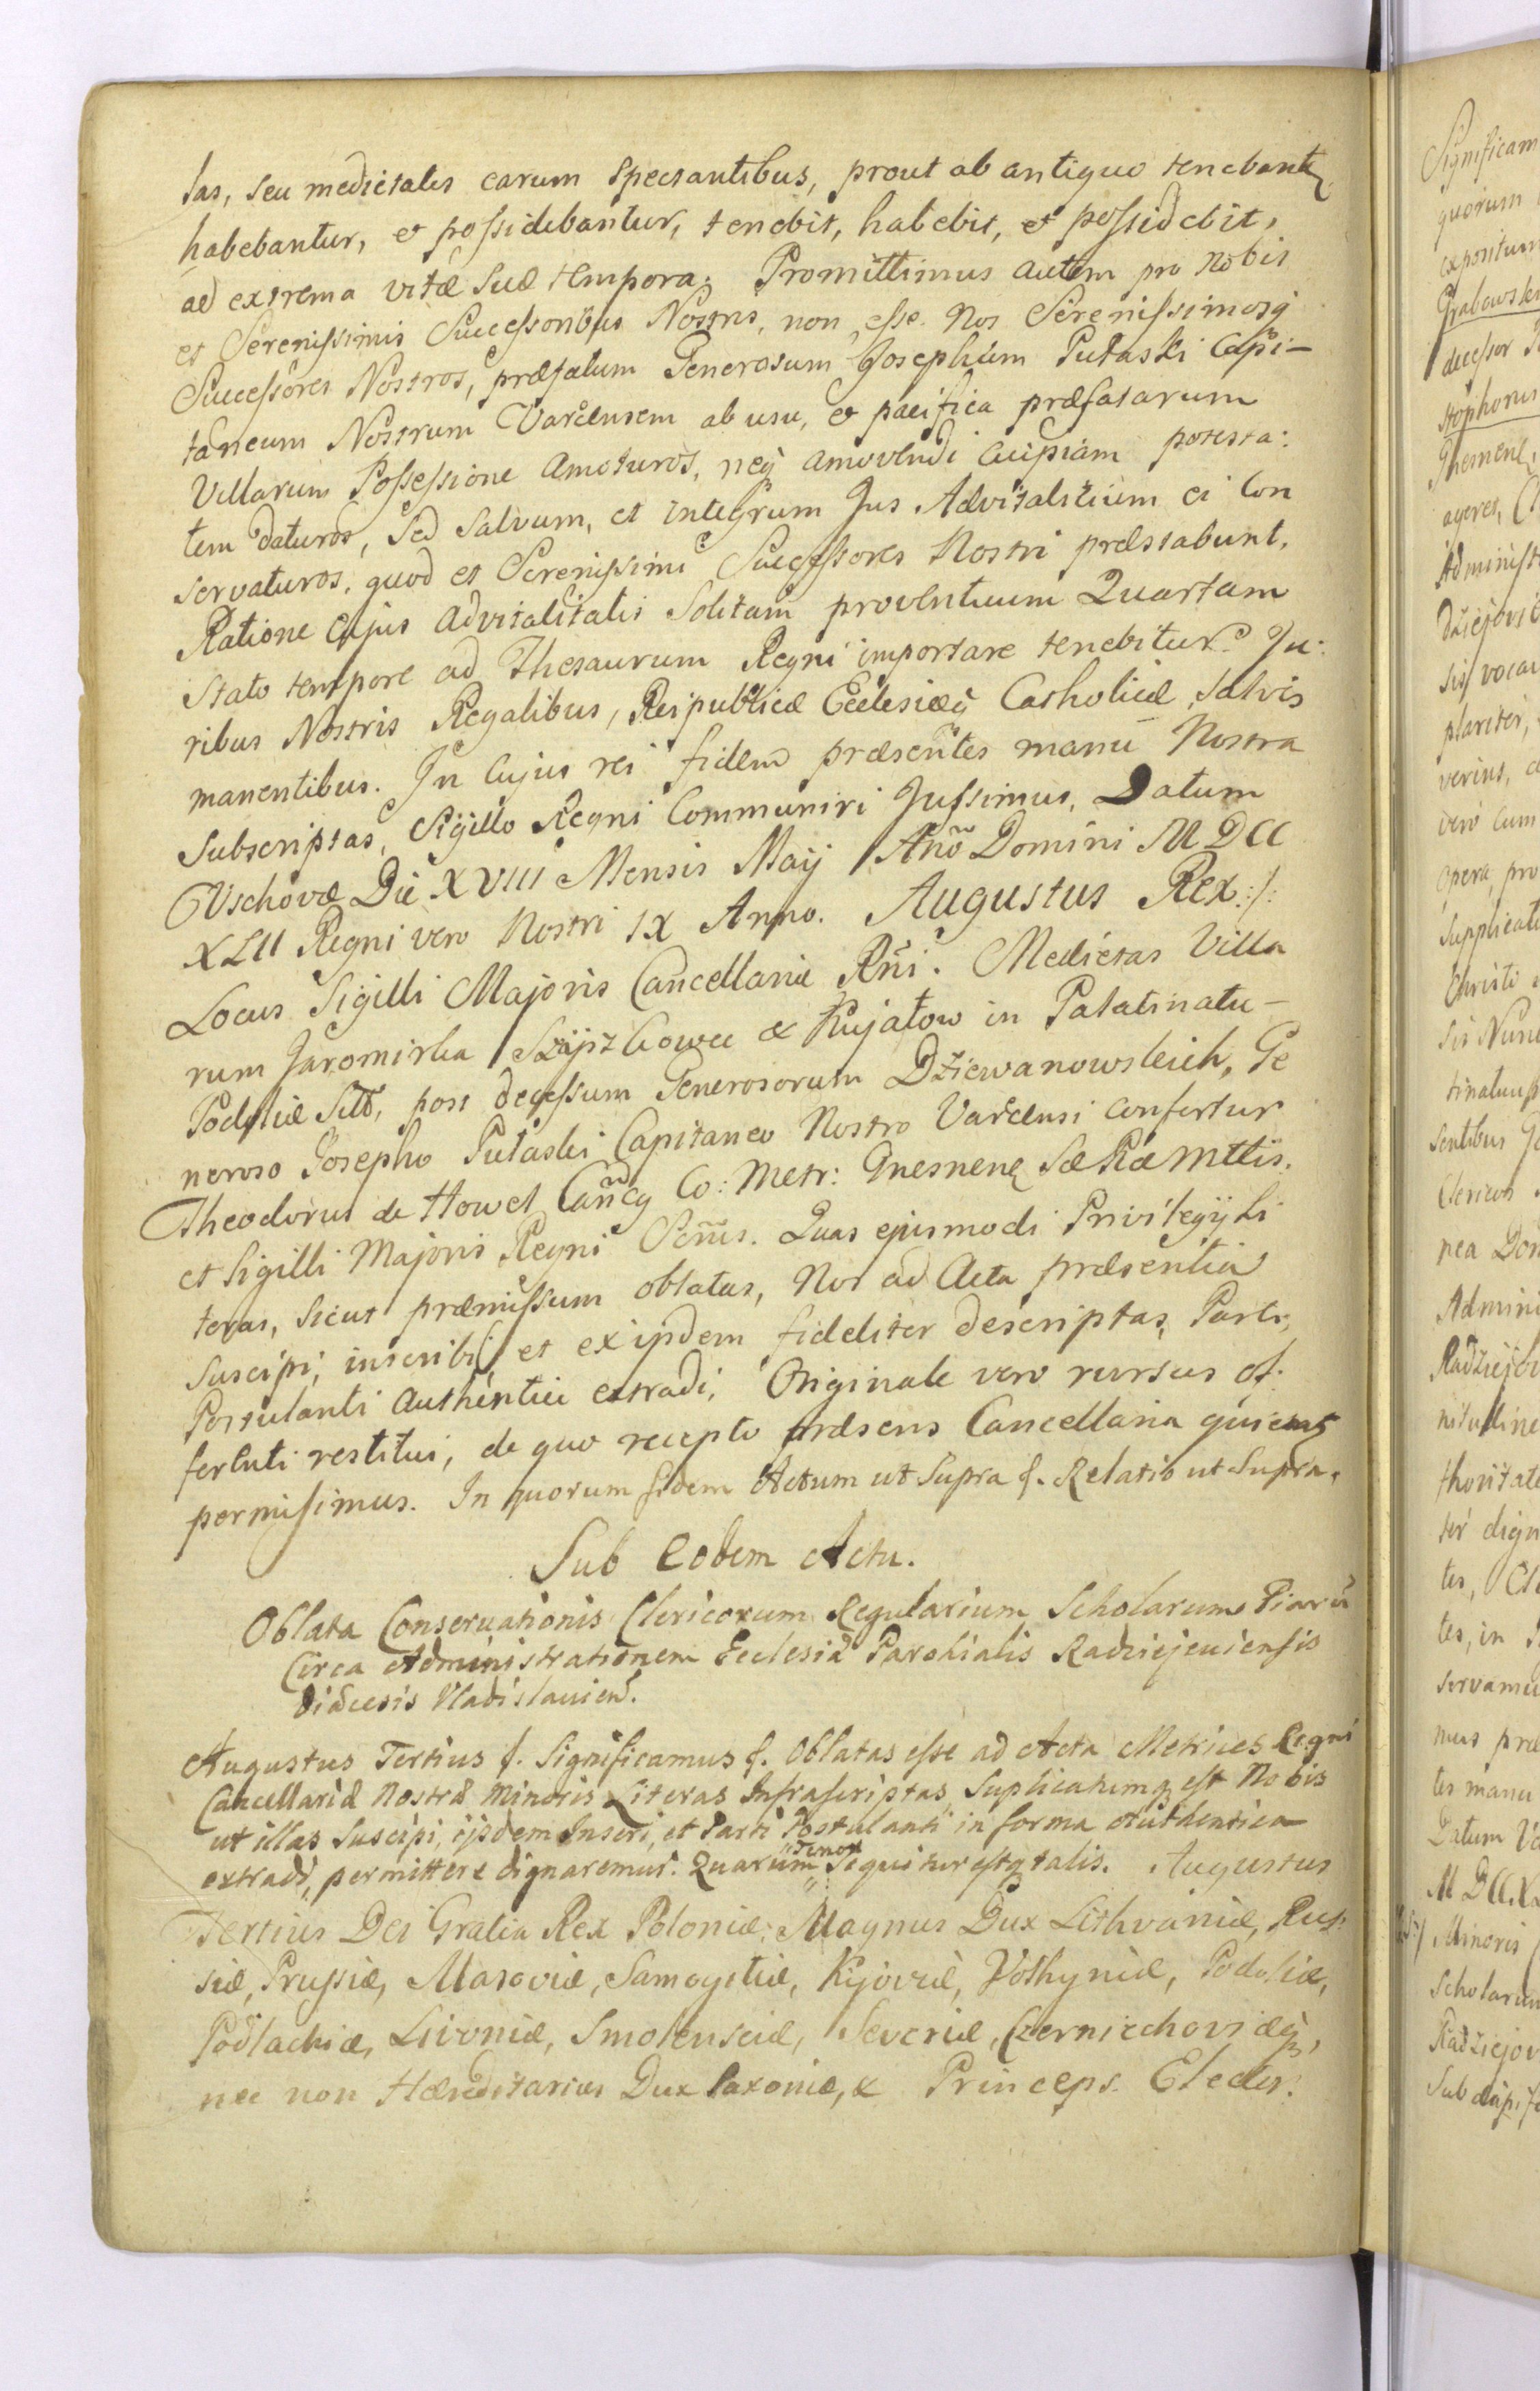 tas, seu medietatis earum spectantibus, prout ab antiquo tenebantz
habebantur, et possidebantur, tenebit, habebit, et possidebit,
ad extrema vitæ suæ tempora. Promittimus autem pro Nobis
et Serenissimis Successoribus Nostris, non esse Nos Serenissimosq
Successores Nostros, præfatum Generosum Josephum Pułaski Capi-
taneum Nostrum Varcensem ab usu, et pacifica præfatarum
Villarum Possessione amoturos, neq amovendi cuipiam potesta:
tem daturos, sed salvum, et integrum Jus Advitalitium ei con
servaturos, quod et Serenissimi Successores Nostri præstabunt.
Ratione cujus advitalitatis solitam proventuum Quartam
stato tempore ad Thesaurum Regni importare tenebitur. Ju:
ribus Nostris Regalibus, Reipublicæ Ecclesiæq Catholicæ, salvis
manentibus. In cujus rei fidem præsentes manu Nostra
subscriptas, Sigillo Regni Communiri Jussimus. Datum
Vschovæ Die XVIII Mensis Maij Año Domini MDCC
XLII Regni vero Nostri IX Anno. Augustus Rex:/:
Locus Sigilli Majoris Cancellariæ Rñi. Medietas Villa
rum Jaromirka Szÿpzkowce & Kujatow in Palatinatu-
Podoliæ Sitt, post decessum Generosorum Dziewanowskich, Ge
neroso Josepho Pułaski Capitaneo Nostro Varcensi confertur
Theodorus de Howel Cañcg Co: Metr: Gnesnenz SæRæMttis.
et Sigilli Majoris Regni Scriüs. Quas ejusmodi Privilegÿ Li
teras, sicut præmissum oblatas, Nos ad Acta præsentia
suscipi, inscribi, et ex ipsdem fideliter descriptas, Parti,
Postulanti authentice extradi, Originale vero rursus of:
ferenti restitui, de quo recepto præsens Cancellaria quietatz
permisimus. In quorum fidem Actum ut Supra f. Relatio ut Supra.
Sub eodem Actu.
Oblata Conservationis Clericorum Regularium Scholarum Piarū
Circa Administrationem Ecclesiæ Parohialis Radziejeviensis
Diæcesis Vladislavien.
Augustus Tertius f. Significamus f. Oblatas esse ad Acta Metrices Regni
Cancellariæ Nostræ Minoris Literas Infrascriptas, Suplicatumq est Nobis
ut illas Suscipi, ijsdem Inseri, et Parti Postulanti in forma Authentica
extradi, permittere dignaremur. Quarum "Tenor" Sequitur estq talis. Augustus
Tertius Dei Gratia Rex Poloniæ, Magnus Dux Lithvaniæ, Rus:
siæ, Prussiæ, Masoviæ, Samogitiæ, Kijoviæ, Volhyniæ, Podoliæ,
Podlachiæ, Livoniæ, Smolensciæ, Severiæ, Czerniechoviæq,
nec non Hæreditarius Dux Saxoniæ, & Princeps Elector.